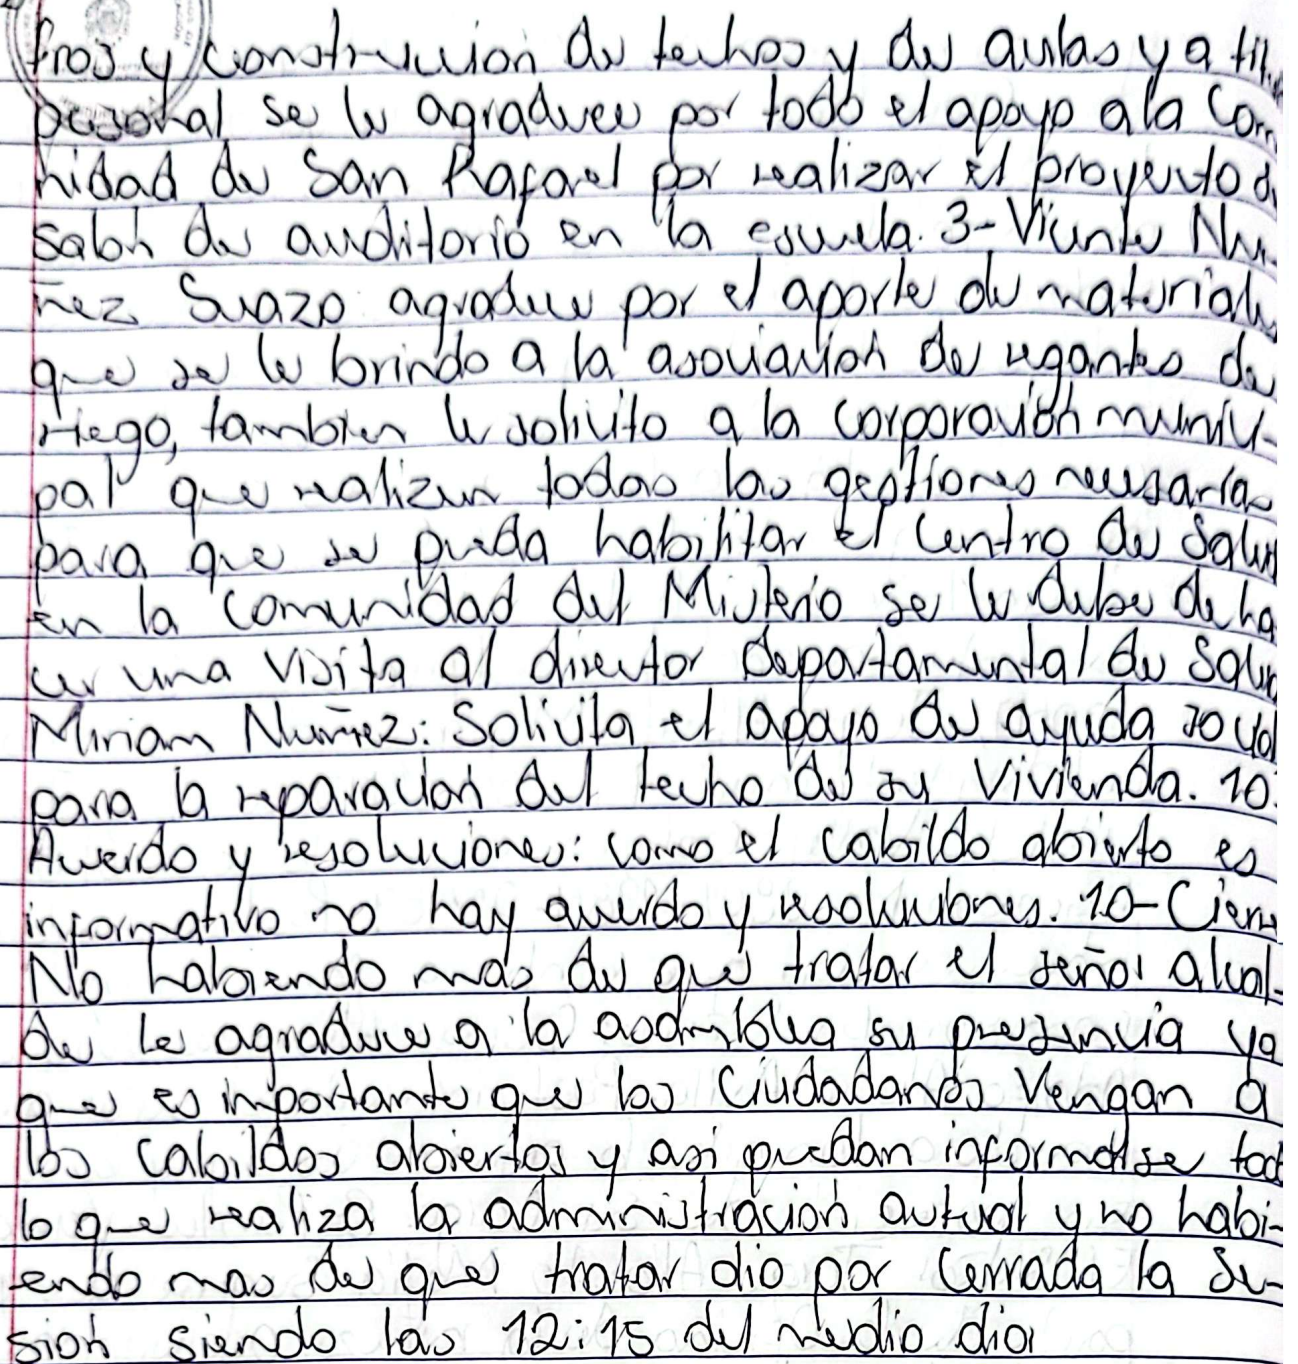 tros y construccion de techos y de aulas y a tit
personal se le agradece por todo el apoyo a la Com
nidad de San Rafael por realizar el proyecto d
salon de auditorio en la escuela. 3- Vicente Nu-
ñez Suazo agradece por el aporte de material
que se le brindo a la asociacion de regantes de
riego, tambien le solicito a la corporacion munici-
pal que realizen todas las gestiones necesarias
para que se pueda habilitar el Centro de Salud
en la comunidad del Misterio se le debe de ha
cer una visita al director departamental de Salud
Miriam Nuñez: Solicita el apoyo de ayuda social
para la reparacion del techo de su vivienda. 10.
Acuerdo y resoluciones: como el cabildo abierto es
informativo no hay acuerdo y resoluciones. 10- Cierre
No habiendo mas de que tratar el señor alcal-
de le agradece a la asamblea su presencia ya
que es importante que los ciudadanos vengan a
los cabildos abiertos y asi puedan informarse tod
lo que realiza la administracion actual y no habi-
endo mas de que tratar dio por cerrada la se-
sion siendo las 12:15 del medio dia